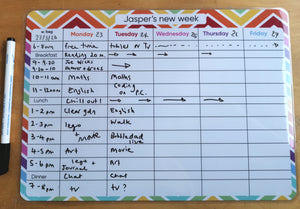 Jasper's new week
w.beg 23/3/20 Monday 23 Tuesday 24 Wednesday 25 Thursday 26 Friday 27
6-8am Free time tablet or TV
Breakfast Reading 20m
9-9.30 Joe Wicks
9.30-10
10-11am Maths Maths
11-12noon English Coding on P.C.
Lunch Chill out!
1-2pm Clear gdn English
2-3pm lego Walk
3-4pm + movie live
4-5pm Art Movie
5-6pm lego + Journal Art
Dinner Chat Chat
7-8pm tv tv?